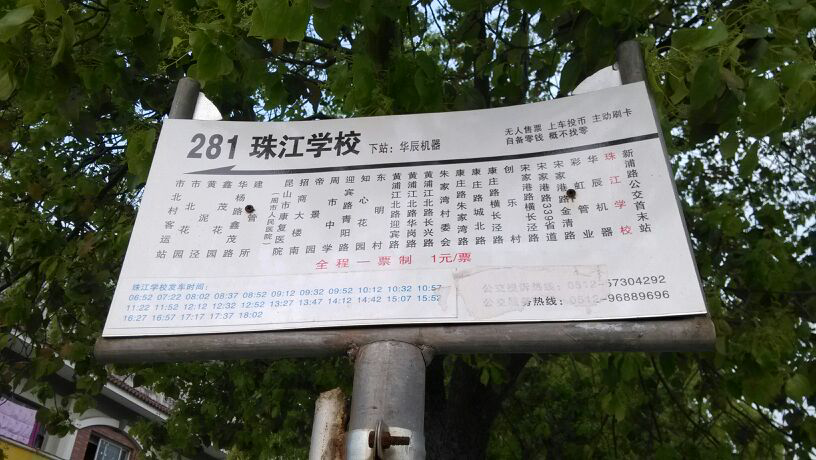 281 珠江学校 下站：华辰机器
无人售票 上车投币 主动刷卡
自备零钱 概不找零
市北村客运站
市北
黄泥泾
鑫茂花园
建管所
昆山市康复医院
（周市人民医院）
招商大楼
周市中学
迎宾路青阳路
东明村
朱家湾村委会
康庄路朱家湾路
康庄路城北路
康庄路横长泾路
创乐村
宋家港路横长泾路
宋家港路339省道
彩虹金清路
华辰机器
珠江学校
新浦路公交首末站
全程一票制 1元/票
珠江学校发车时间：
06:52 07:22 08:02 08:37 08:52 09:12 09:32 09:52 10:12 10:32 10:57
11:22 11:52 12:12 12:32 12:52 13:27 13:47 14:12 14:42 15:07 15:52
16:27 16:57 17:17 17:37 18:02
公交投诉热线：0512-57304292
公交服务热线：0512-96889696